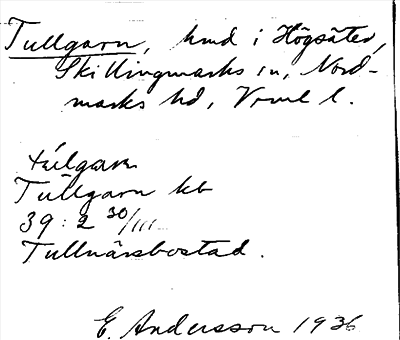 Tullgarn, hmd i Högsäter,
Skillingmarks sn, Nord-
marks hd, Vrml l.
túlgarn
Tullgarn kb
39:2 30/III
Tullnärsbostad.
E. Andersson 1936